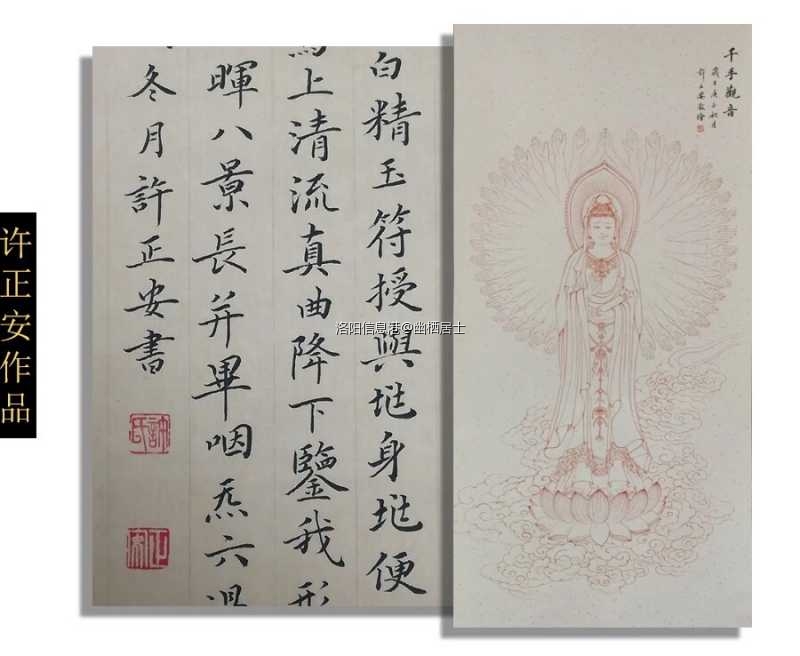 许正安作品
白精玉符授與兆身兆便
上清流真曲降下鑒我形
暉八景長并畢咽炁六過
冬月許正安書
許氏
正安
千手觀音
庚子
許正安敬繪
洛阳信息港@幽栖居士